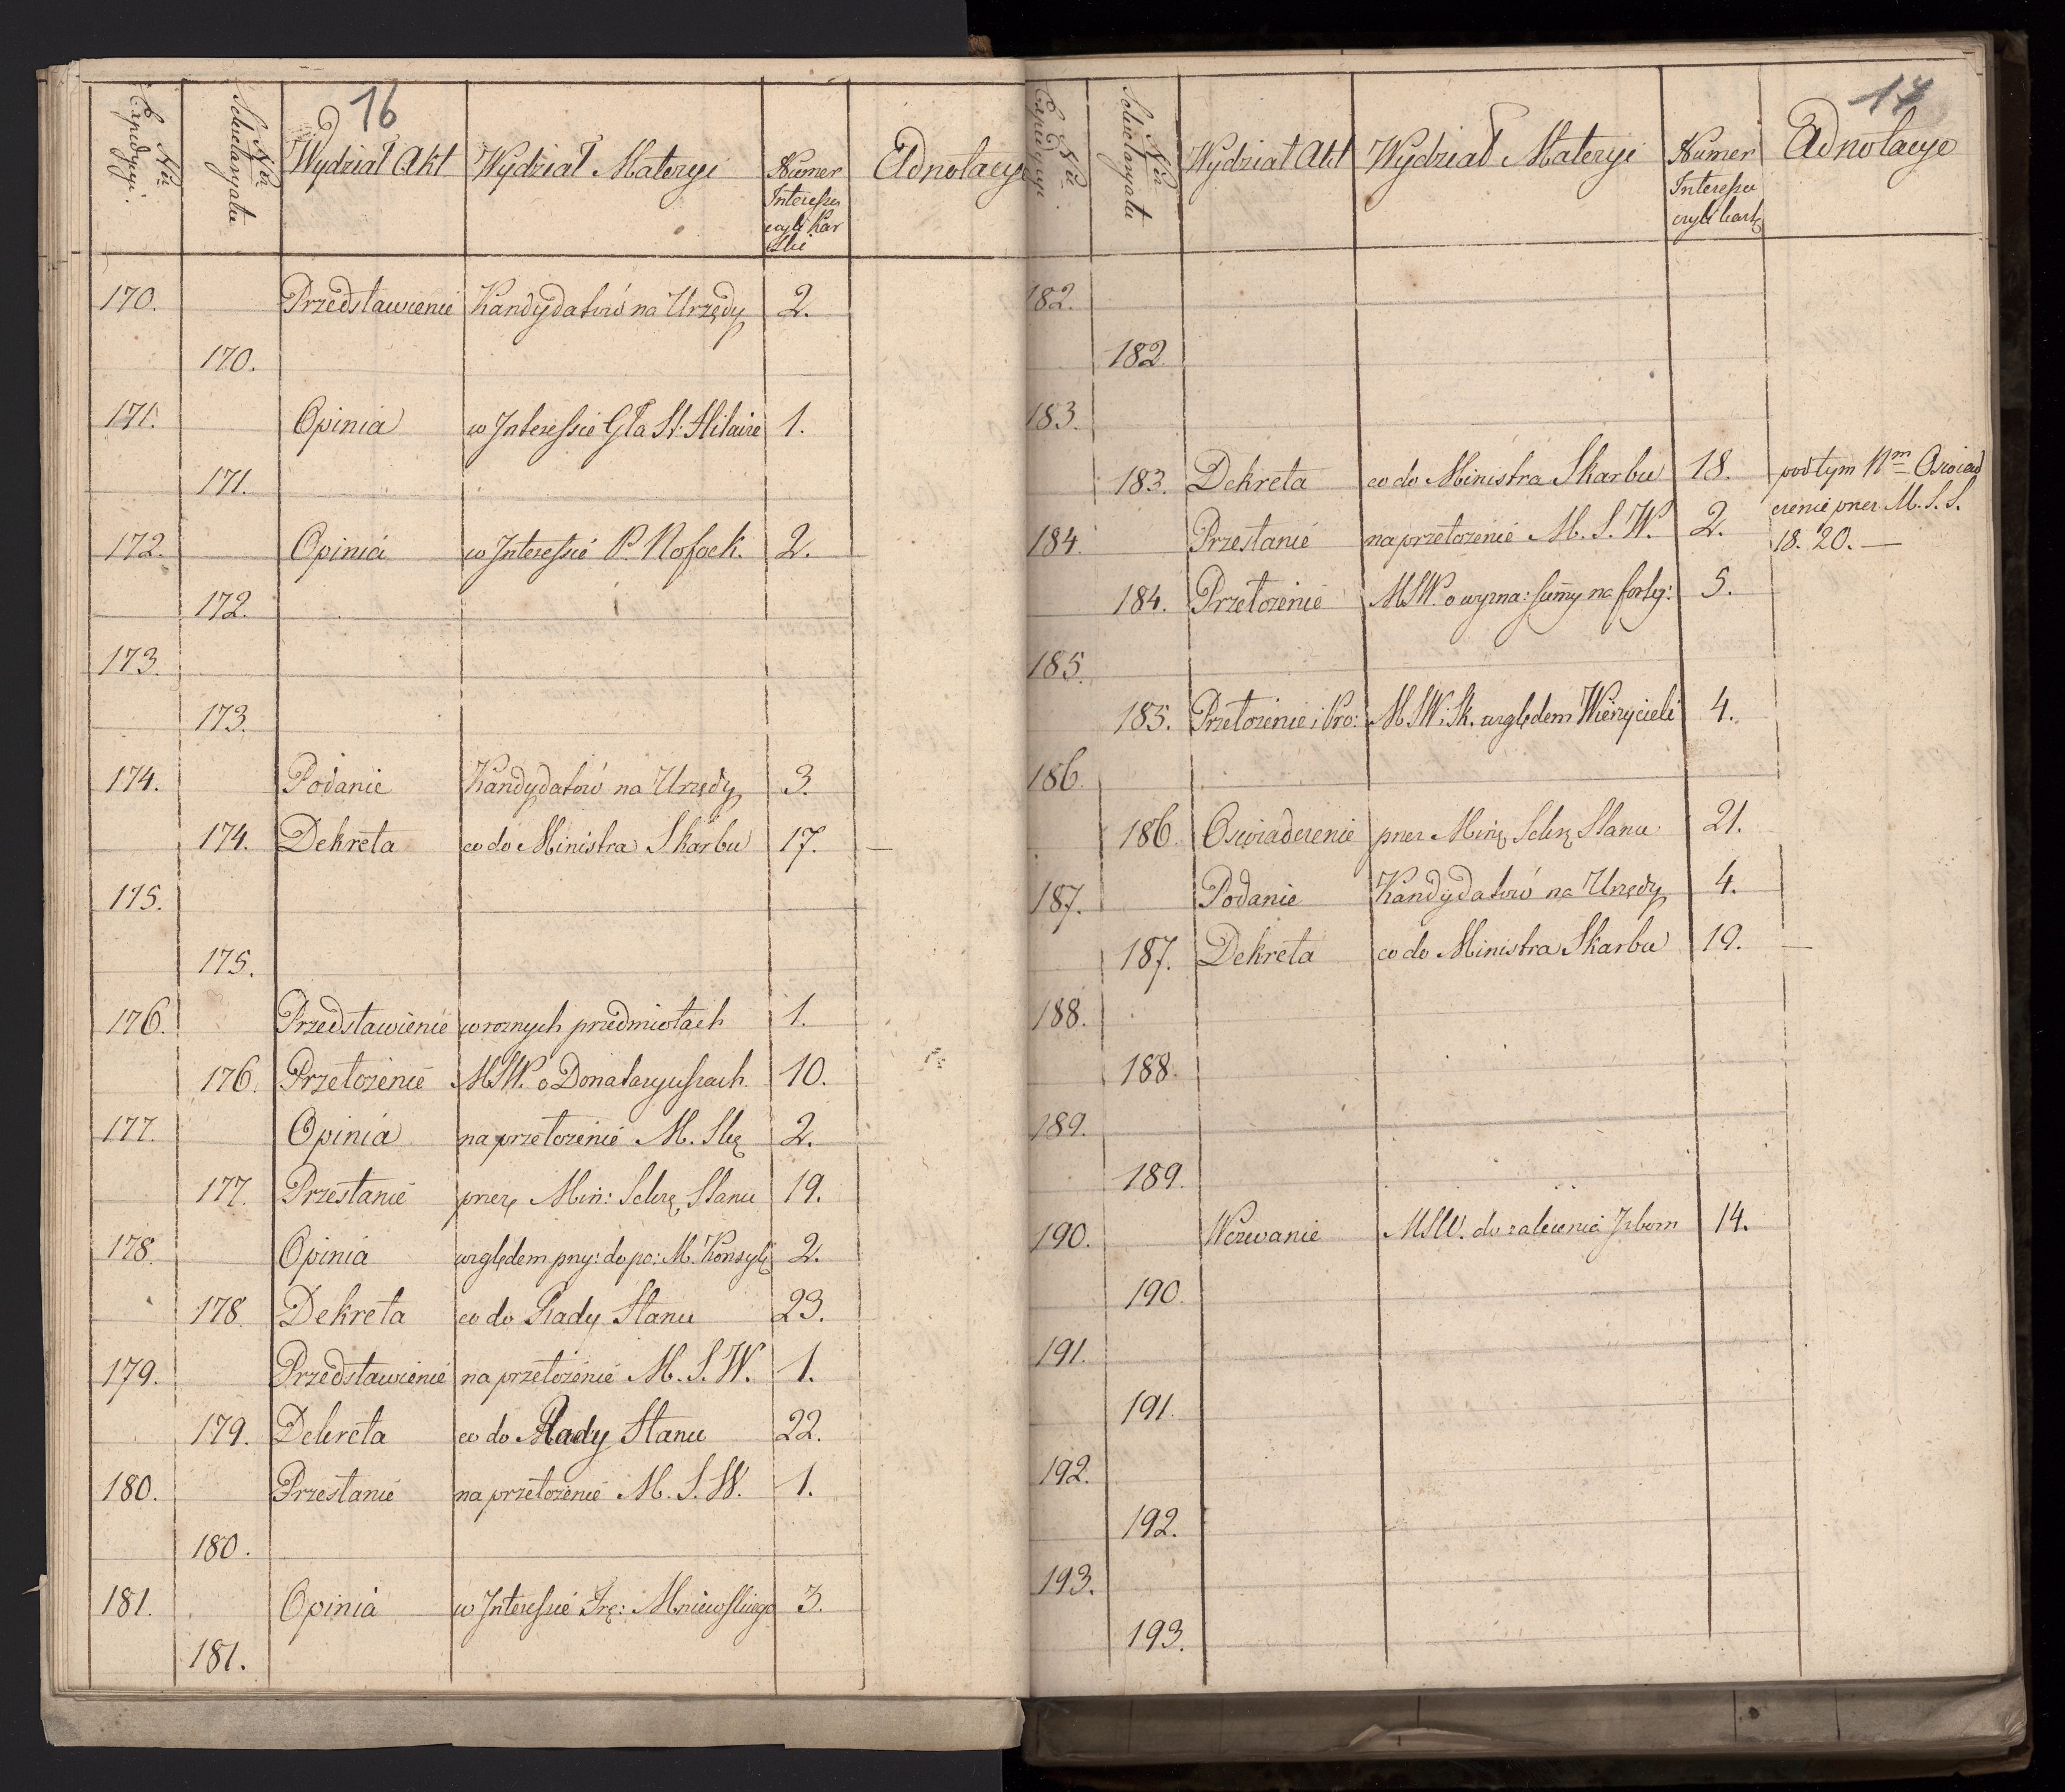 16
Nr Expedycyi.
Nr Sekretaryatu
Wydział Akt
Wydział Materyi
Numer Interessu czyli Kartki
Adnotacye
170. Przedstawienie Kandydatów na Urzędy 2.
170.
171. Opinia w Interessie Gła St: Hilaire 1.
171.
172. Opinia w Interessie P. 2.
172.
173.
173.
174. Podanie Kandydatów na Urzędy 3.
174. Dekreta co do Ministra Skarbu 17. —
175.
175.
176. Przedstawienie w roznych przedmiotach 1.
176. Przełożenie MSW. o Donataryuszach 10.
177. Opinia na przełożenie M. Skę 2.
177. Przesłanie przez Min: Sekrę Stanu 19.
178. Opinia względem pny: do po: M. Konsylį 2.
178. Dekreta co do Rady Stanu 23.
179. Przedstawienie na przełożenie M. S. W. 1.
179. Dekreta co do Rady Stanu 22.
180. Przesłanie na przełożenie M. S. W. 1.
180.
181. Opinia w Interessie Mniewskiego 3.
181.
17
Nr Expedycyi
Nr Sekretaryatu
Wydział Akt
Wydział Materyi
Numer Interessu czyli kartę
Adnotacye
182.
182.
183.
183. Dekreta co do Ministra Skarbu 18. pod tym Nm Oswiad
czenie przez M. S. S.
184. Przesłanie na przełożenie M. S. W. 2. 18. 20. —
184. Przełożenie MSW. o wyzna: summy na forteg: 5.
185.
185. Przełożenie i Pro: MSW. i Sk. względem Wierzycieli 4.
186.
186. Oswiadczenie przez Minę Sekrę Stanu 21.
187. Podanie Kandydatów na Urzędy 4.
187. Dekreta co do Ministra Skarbu 19. —
188.
188.
189.
189.
190. Wezwanie MSW. do zalecenia Izbom 14.
190.
191.
191.
192.
192.
193.
193.